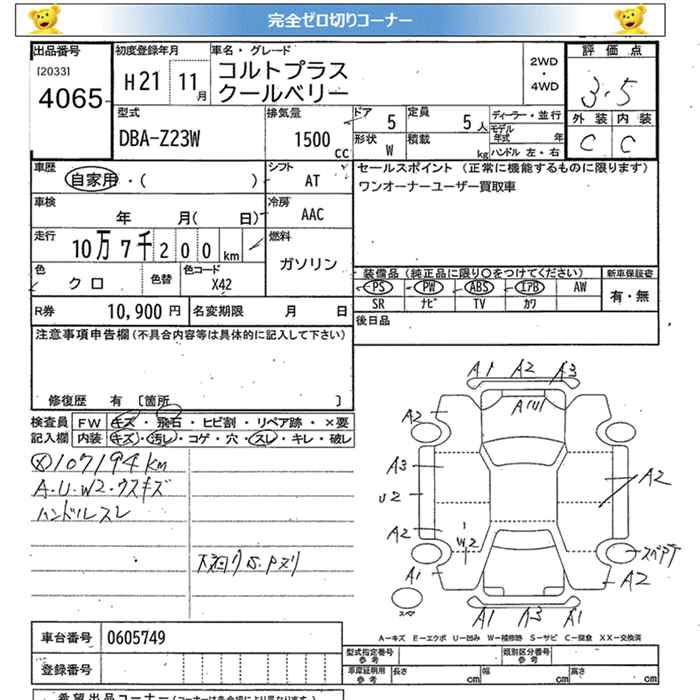 完全ゼロ切りコーナー
出品番号 初度登録年月 車名・グレード 2WD・4WD 評価点
[2033]
4065 H21 11月 コルトプラス
クールベリー
3.5
型式 排気量 ドア 5 定員 5人 ディーラー・並行 外装 内装
DBA-Z23W 1500cc 形状 W 積載 kg モデル年式 年 C C
ハンドル 左・右
車歴 自家用・( ) シフト AT セールスポイント (正常に機能するものに限ります)
ワンオーナーユーザー買取車
車検 年 月( 日) 冷房 AAC
走行 10万7千200km 燃料 ガソリン
色 クロ 色替 色コード X42
装備品(純正品に限り○をつけてください) 新車保証書
PS PW ABS エアB AW 有・無
SR ナビ TV カワ
R券 10,900円 名変期限 月 日 後日品
注意事項申告欄(不具合内容等は具体的に記入して下さい)
修復歴 有 〔箇所 〕
検査員 FW キズ・飛石・ヒビ割・リペア跡・×要
記入欄 内装 キズ・汚レ・コゲ・穴・スレ・キレ・破レ
107194km
A・U・W2・ウスキズ
ハンドルスレ
下廻りS.Pヌリ
A1 A2 A3
A2
A3 A2
U2
A2 W2
A1 スペアタ
A2
A1 A3 A1
A-キズ E-エクボ U-凹み W-補修跡 S-サビ C-腐食 XX-交換済
車台番号 0605749
登録番号
型式指定番号 参考 類別区分番号 参考
車庫証明用 参考 長さ cm 幅 cm 高さ cm
希望出品コーナー